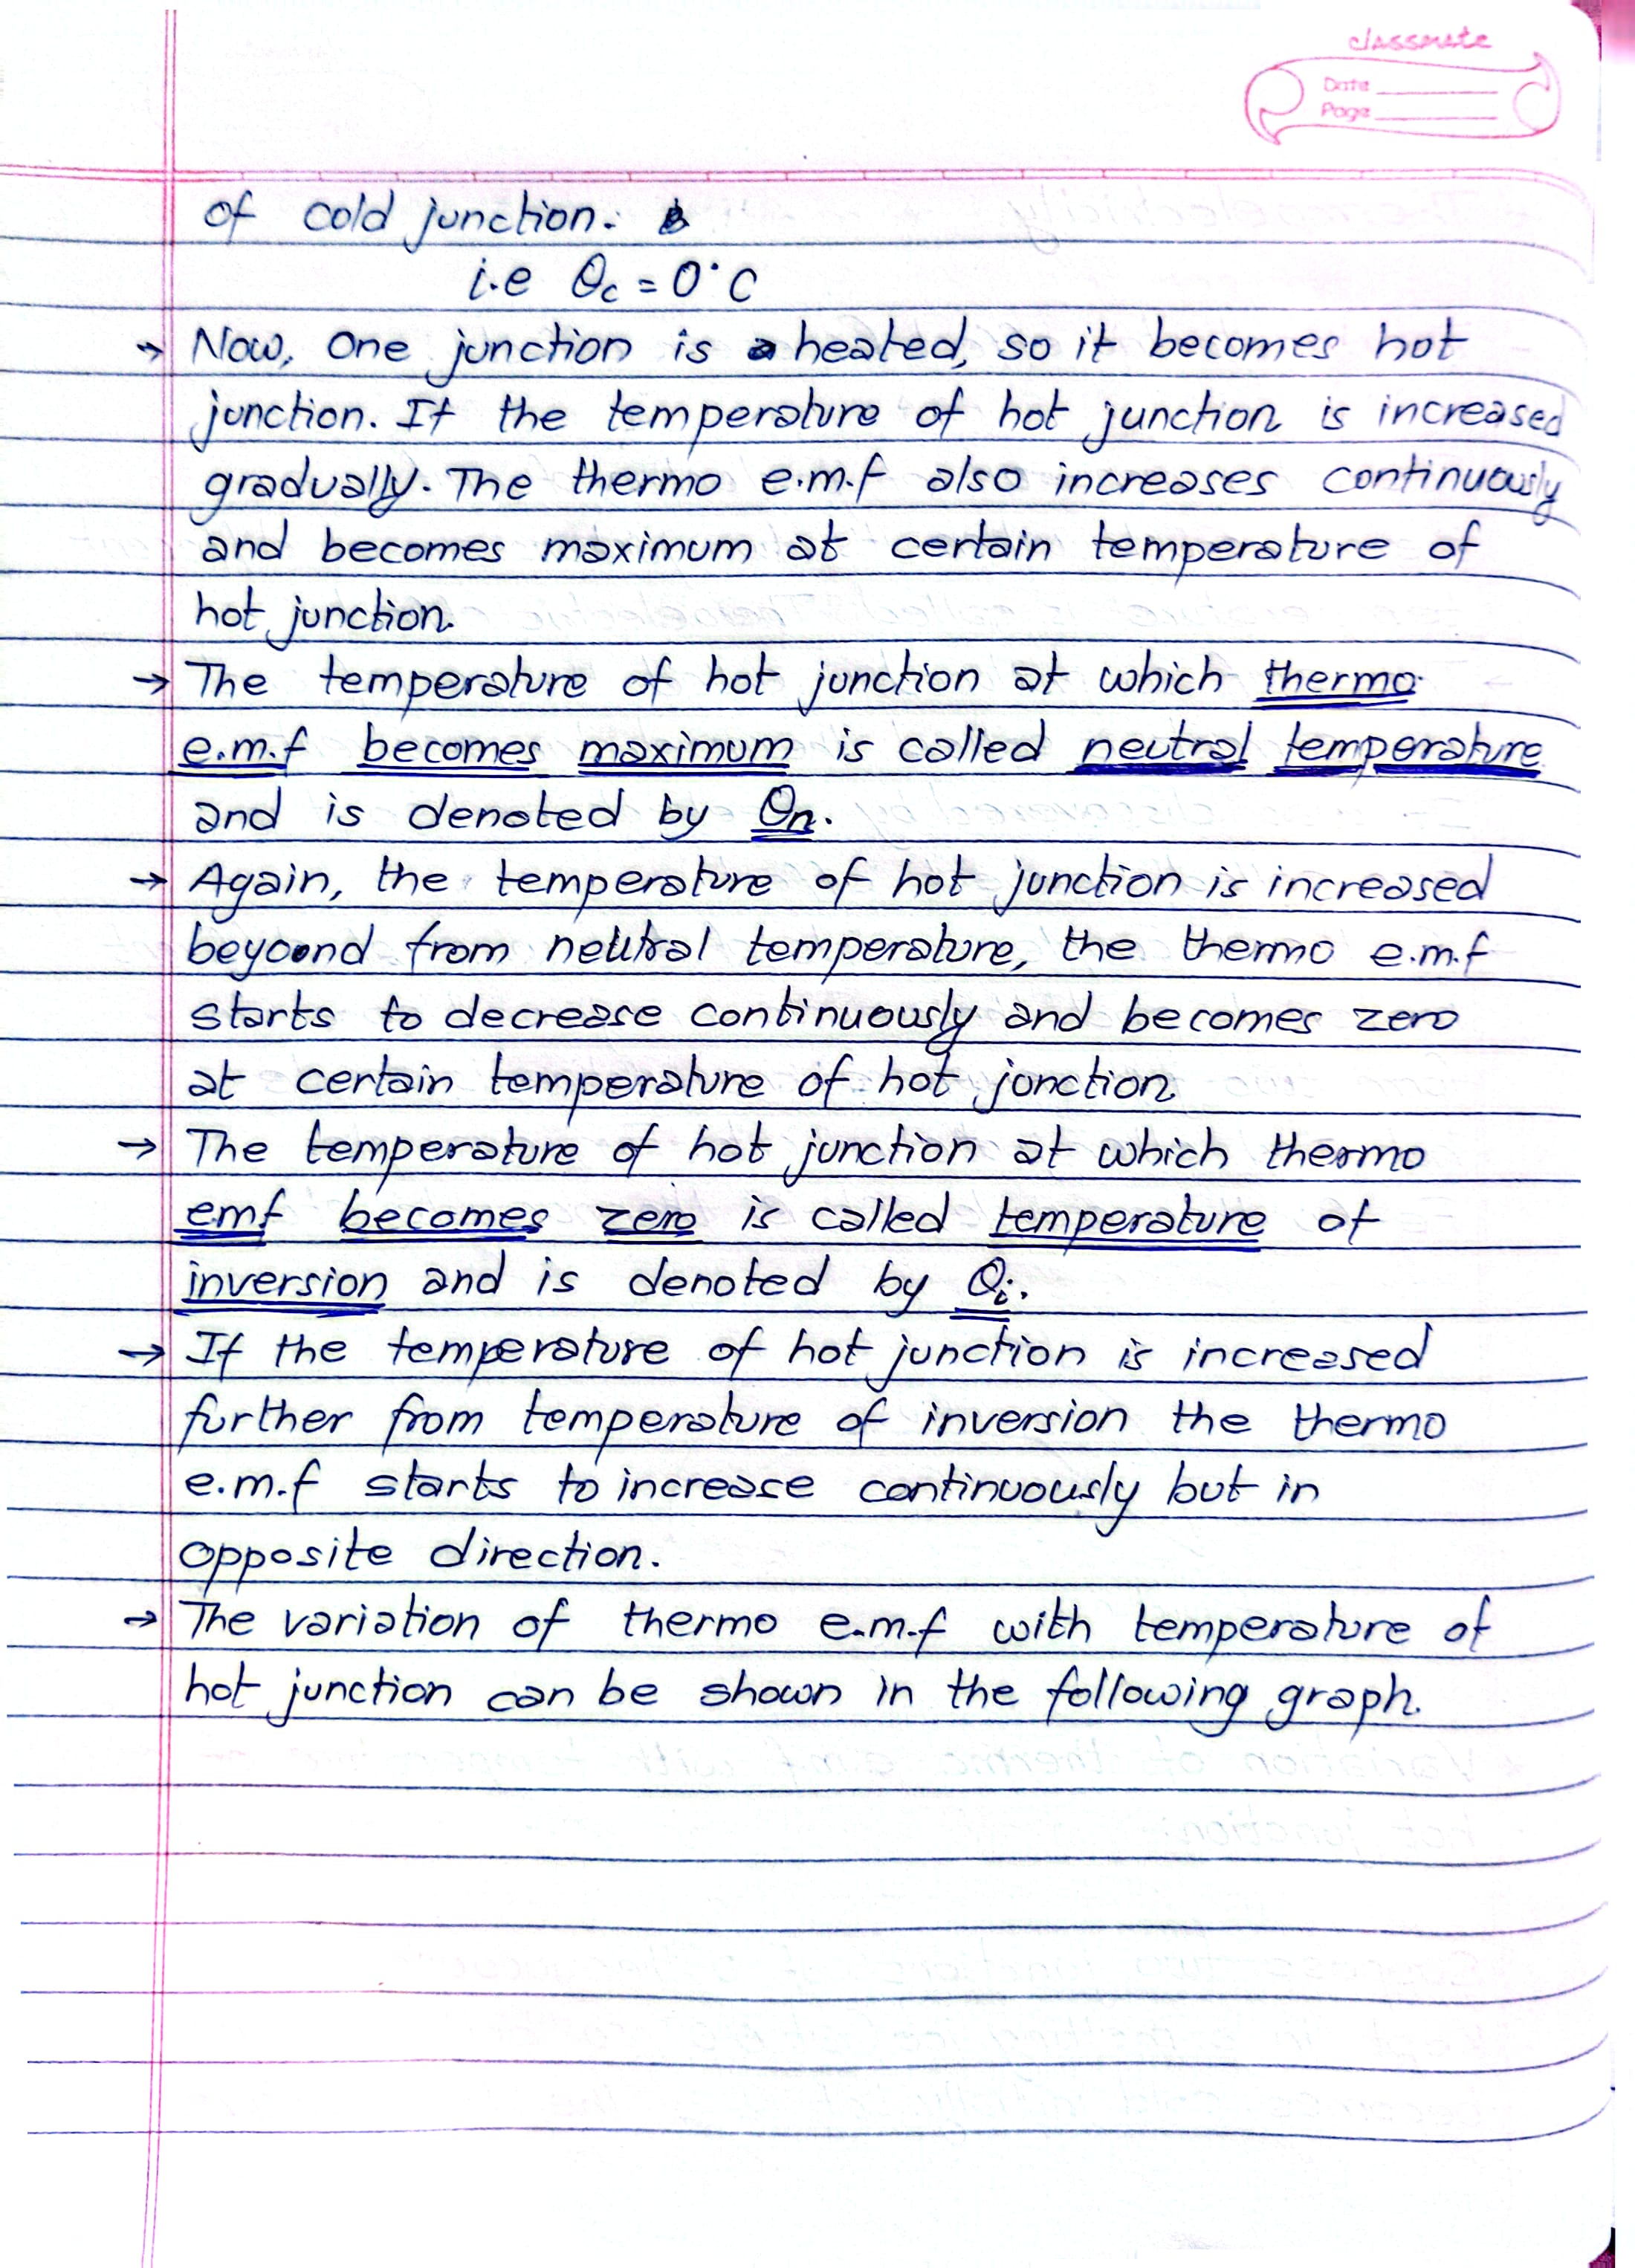 classmate
Date
Page
of cold junction.
i.e θc = 0°C
→ Now, One junction is heated, so it becomes hot
junction. If the temperature of hot junction is increased
gradually. The thermo e.m.f also increases continuously
and becomes maximum at certain temperature of
hot junction.
→ The temperature of hot junction at which thermo
e.m.f becomes maximum is called neutral temperature
and is denoted by θn.
→ Again, the temperature of hot junction is increased
beyoond from neutral temperature, the thermo e.m.f
starts to decrease continuously and becomes zero
at certain temperature of hot junction.
→ The temperature of hot junction at which thermo
emf becomes zero is called temperature of
inversion and is denoted by θi.
→ If the temperature of hot junction is increased
further from temperature of inversion the thermo
e.m.f starts to increase continuously but in
opposite direction.
→ The variation of thermo e.m.f with temperature of
hot junction can be shown in the following graph.